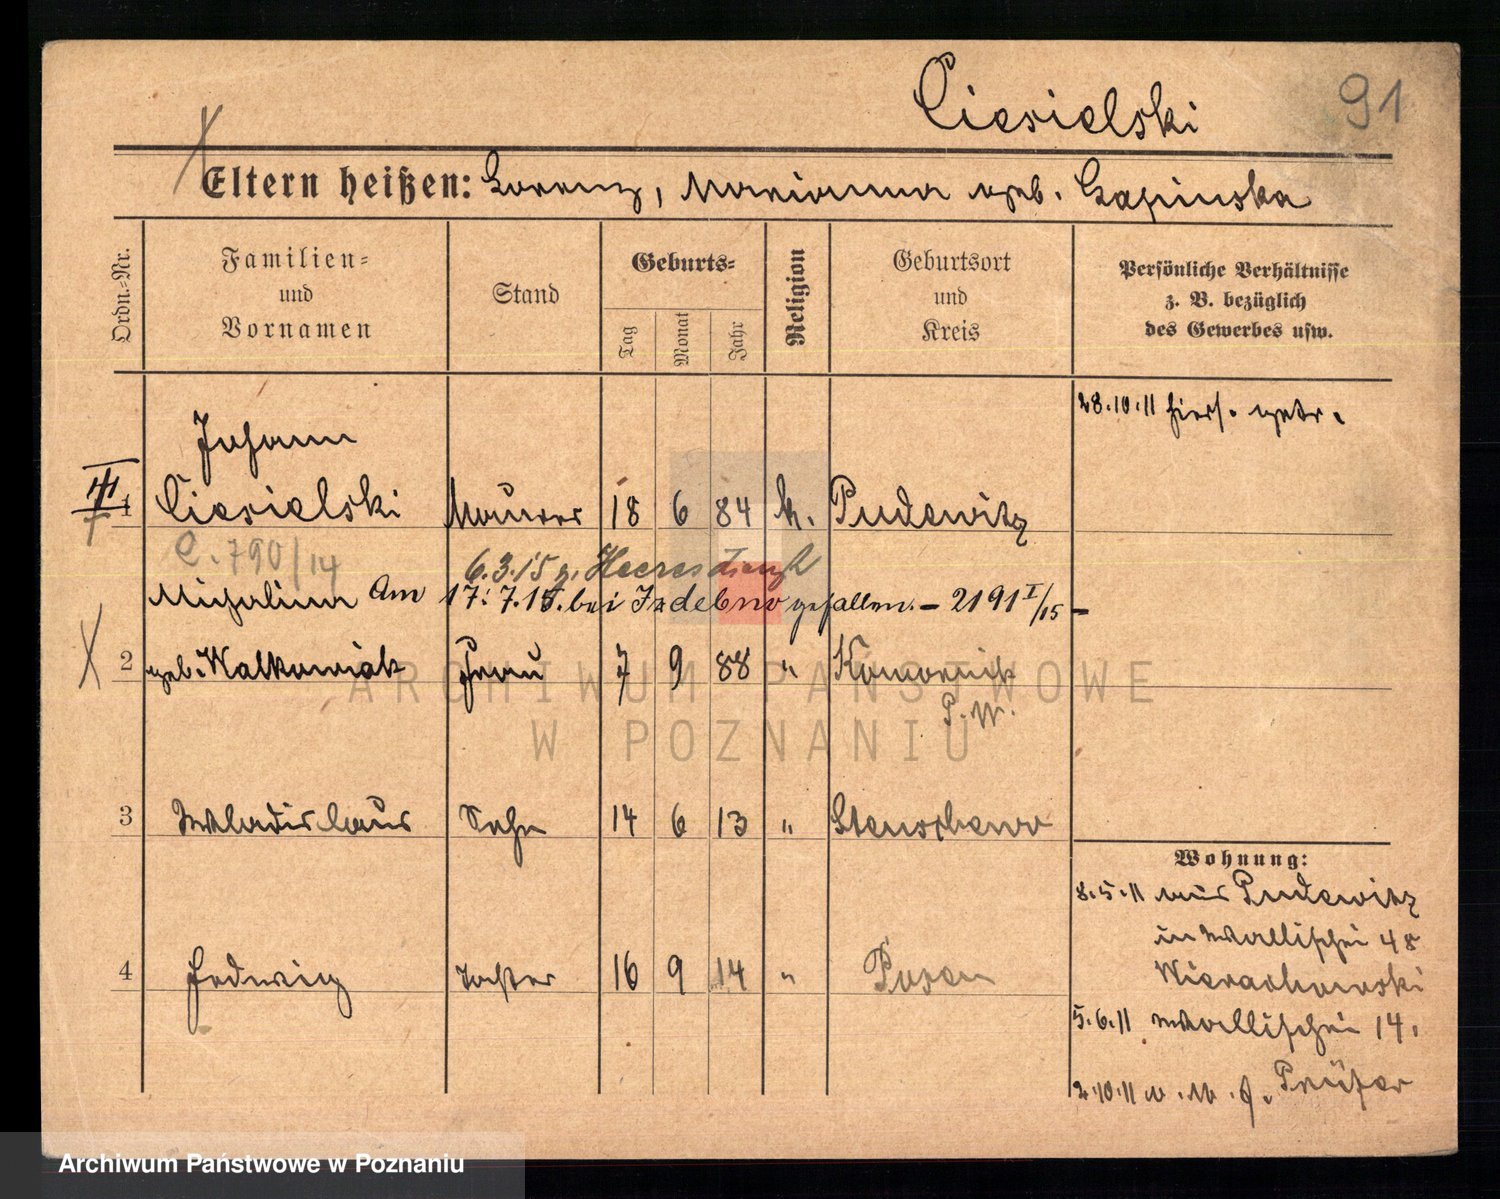 Ciesielski
91
Eltern heißen: Lorenz, Marianna geb. Lapinska
Ordn.-Nr.
Familien-
und
Vornamen
Stand
Geburts-
Tag
Monat
Jahr
Religion
Geburtsort
und
Kreis
Persönliche Verhältnisse
z. B. bezüglich
des Gewerbes usw.
28.10.11 hiers. getr.
Johann
1 Ciesielski Maurer 18 6 84 k. Pudewitz
C. 790/14
6.3.15 z. Heeresdienst
Michalina Am 17.7.15. bei Izdebno gefallen. – 2191 I/15 –
2 geb. Walkowiak Frau 7 9 88 " Komornik
P. W.
3 Wladislaus Sohn 14 6 13 " Stenschewo
4 Hedwig Tochter 16 9 14 " Posen
Wohnung:
8.5.11 aus Pudewitz
in Wallischei 48
5.6.11 Wallischei 14,
2.10.11
ARCHIWUM PAŃSTWOWE
W POZNANIU
Archiwum Państwowe w Poznaniu